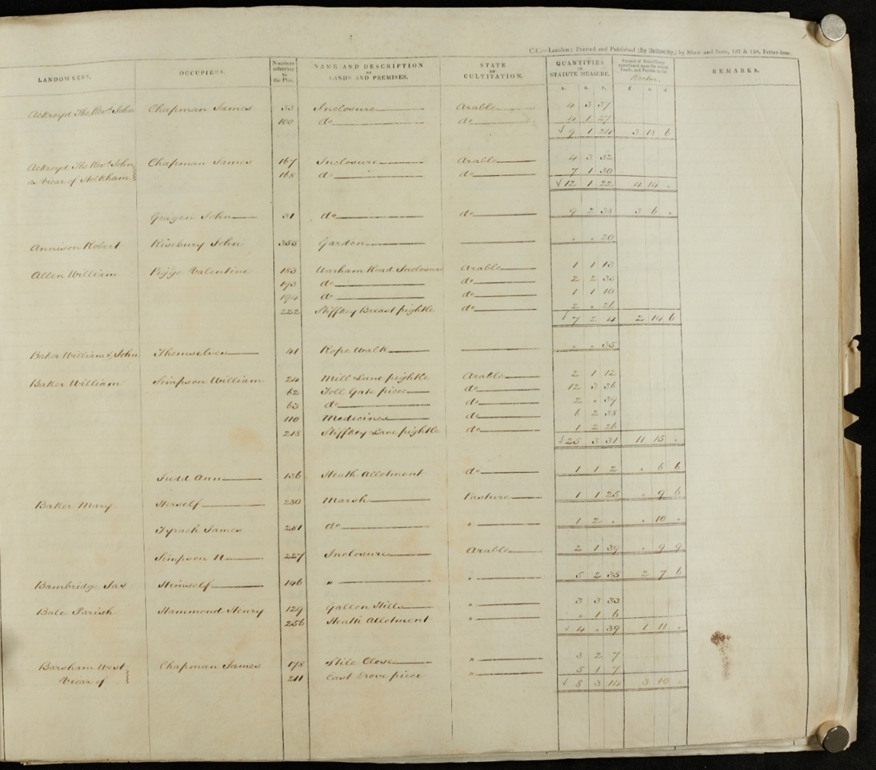 C.C.—London: Printed and Published (By Authority,) by Shaw and Sons, 137 & 138, Fetter-lane.
LANDOWNERS. OCCUPIERS. Numbers referring to the Plan. NAME AND DESCRIPTION OF LANDS AND PREMISES. STATE OF CULTIVATION. QUANTITIES IN STATUTE MEASURE. Amount of Rent-Charge apportioned upon the several Lands, and Payable to the Rector. REMARKS.
A. R. P. £ s. d.
Ackroyd The Revd. John Chapman James 53 Inclosure Arable 4 3 37
100 do do 4 1 27
£ 9 1 24 3 18 6
Ackroyd The Revd. John Chapman James 167 Inclosure Arable 4 3 32
as Vicar of 168 do do 7 1 30
£ 12 1 22 4 14 .
John 31 do do 9 2 38 3 6 .
Robert John 355 Garden . . 20
Allen William Valentine 183 Warham Road Inclosure Arable 1 1 13
193 do do 2 2 35
194 do do 1 1 10
222 Stiffkey pightle do 2 . 26
£ 7 2 4 2 14 6
Baker William & John Themselves 41 Rope Walk . . 35
Baker William Simpson William 24 Mill Lane pightle Arable 2 1 12
62 Toll Gate piece do 12 3 36
63 do do 2 . 39
110 Medicines do 6 2 38
218 Stiffkey Lane pightle do 1 2 26
£ 25 3 31 11 15 .
Judd Ann 136 Heath Allotment do 1 1 2 . 6 6
Baker Mary Herself 250 Marsh Pasture 1 1 25 . 9 6
James 251 do " 1 2 . . 10 .
Simpson 227 Inclosure Arable 2 1 39 . 9 9
Bambridge Jas Himself 146 " " 5 2 35 2 7 6
Bale Parish Hammond Henry 129 Gallow Hill " 3 3 33
256 Heath Allotment " . 1 6
£ 4 . 39 1 11 .
Barsham West Chapman James 178 Stile Close " 3 2 7
Vicar of 211 East Grove piece " 5 1 7
£ 8 3 14 3 10 .